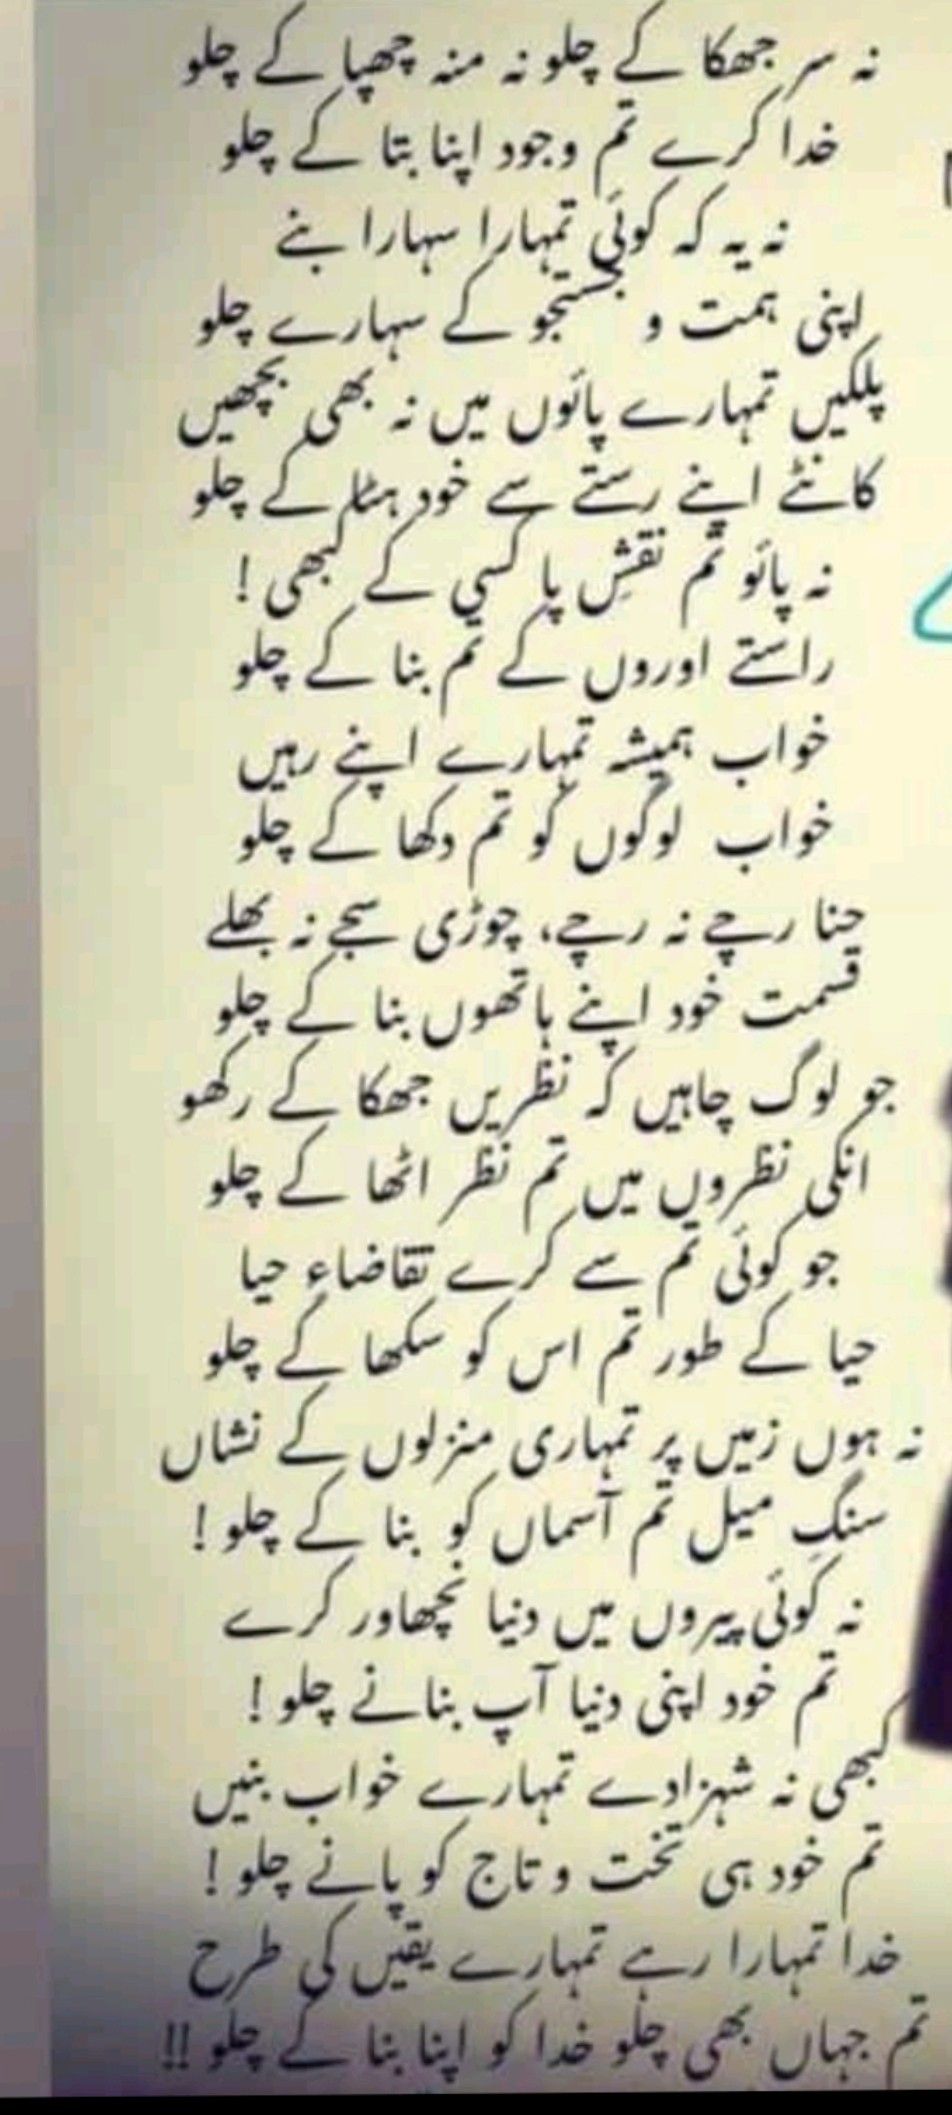 نہ سر جھکا کے چلو نہ منہ چھپا کے چلو
خدا کرے تم وجود اپنا بتا کے چلو
نہ یہ کہ کوئی تمہارا سہارا بنے
اپنی ہمت و جستجو کے سہارے چلو
پلکیں تمہارے پائوں میں نہ بھی بچھیں
کانٹے اپنے رستے سے خود ہٹا کے چلو
نہ پائو تم نقشِ پا کسی کے کبھی !
راستے اوروں کے تم بنا کے چلو
خواب ہمیشہ تمہارے اپنے رہیں
خواب لوگوں کو تم دکھا کے چلو
حنا رچے نہ رچے، چوڑی سجے نہ بھلے
قسمت خود اپنے ہاتھوں بنا کے چلو
جو لوگ چاہیں کہ نظریں جھکا کے رکھو
انکی نظروں میں تم نظر اٹھا کے چلو
جو کوئی تم سے کرے تقاضاء حیا
حیا کے طور تم اس کو سکھا کے چلو
نہ ہوں زمیں پر تمہاری منزلوں کے نشاں
سنگِ میل تم آسماں کو بنا کے چلو !
نہ کوئی پیروں میں دنیا نچھاور کرے
تم خود اپنی دنیا آپ بنانے چلو !
کبھی نہ شہزادے تمہارے خواب بنیں
تم خود ہی تخت و تاج کو پانے چلو !
خدا تمہارا رہے تمہارے یقیں کی طرح
تم جہاں بھی چلو خدا کو اپنا بنا کے چلو !!